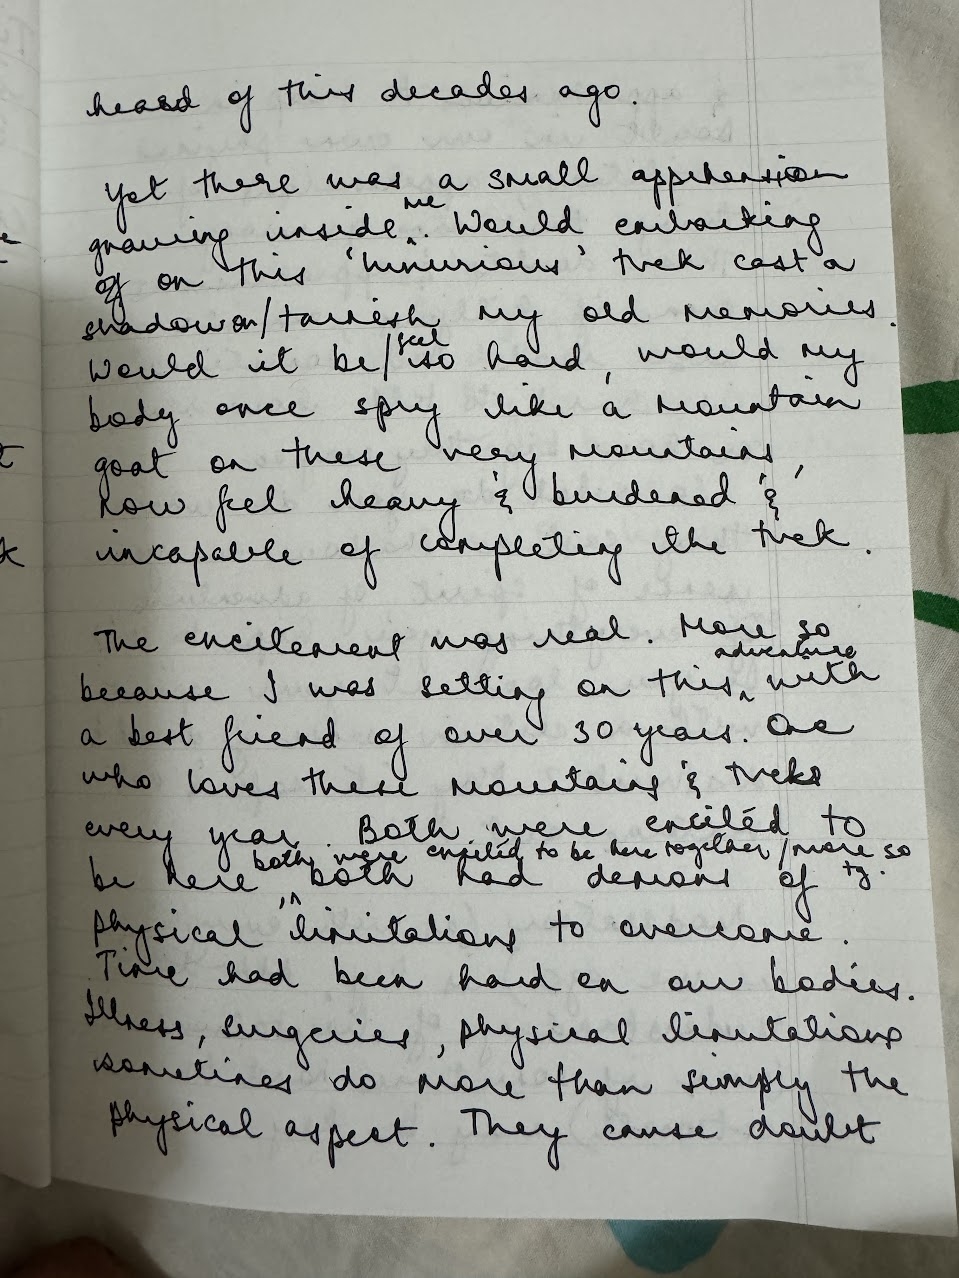 heard of this decades ago.
Yet there was a small apprehension
growing inside me. Would embarking
on this 'luxurious' trek cast a
shadow on/tarnish my old memories.
Would it be/feel so hard, would my
body once spry like a mountain
goat on these very mountains,
now feel heavy & burdened &
incapable of completing the trek.
The excitement was real. More so
because I was setting on this adventure with
a best friend of over 30 years. One
who loves these mountains & treks
every year. Both were excited to
both were excited to be here together/more so
be here, both had demons of
physical limitations to overcome.
Time had been hard on our bodies.
Illness, surgeries, physical limitations
sometimes do more than simply the
physical aspect. They cause doubt